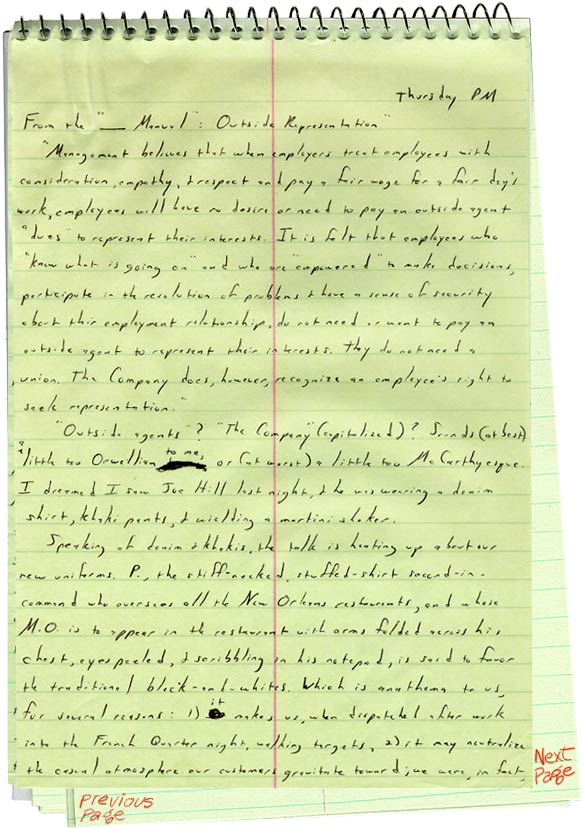 Thursday PM
From the "___ Manual": Outside Representation"
"Management believes that when employers treat employees with
consideration, empathy, & respect and pay a fair wage for a fair day's
work, employees will have no desire or need to pay an outside agent
"dues" to represent their interests. It is felt that employees who
"know what is going on" and who are "empowered" to make decisions,
participate in the resolution of problems & have a sense of security
about their employment relationship, do not need or want to pay an
outside agent to represent their interests. They do not need a
union. The Company does, however, recognize an employee's right to
seek representation."
"Outside agents"? "The Company" (capitalized)? Sounds (at best)
a little too Orwellian to me, or (at worst) a little too McCarthyesque.
I dreamed I saw Joe Hill last night, & he was wearing a denim
shirt, khaki pants, & wielding a martini shaker.
Speaking of denim & khakis, the talk is heating up about our
new uniforms. P., the stiff-necked, stuffed-shirt second-in-
command who oversees all the New Orleans restaurants, and whose
M.O. is to appear in the restaurant with arms folded across his
chest, eyes peeled, & scribbling in his notepad, is said to favor
the traditional black-and-whites. Which is anathema to us,
for several reasons: 1) it makes us, when dispatched after work
into the French Quarter night, walking targets, 2) it may neutralize
the casual atmosphere our customers gravitate toward; we were, in fact,
Next
Page
Previous
Page